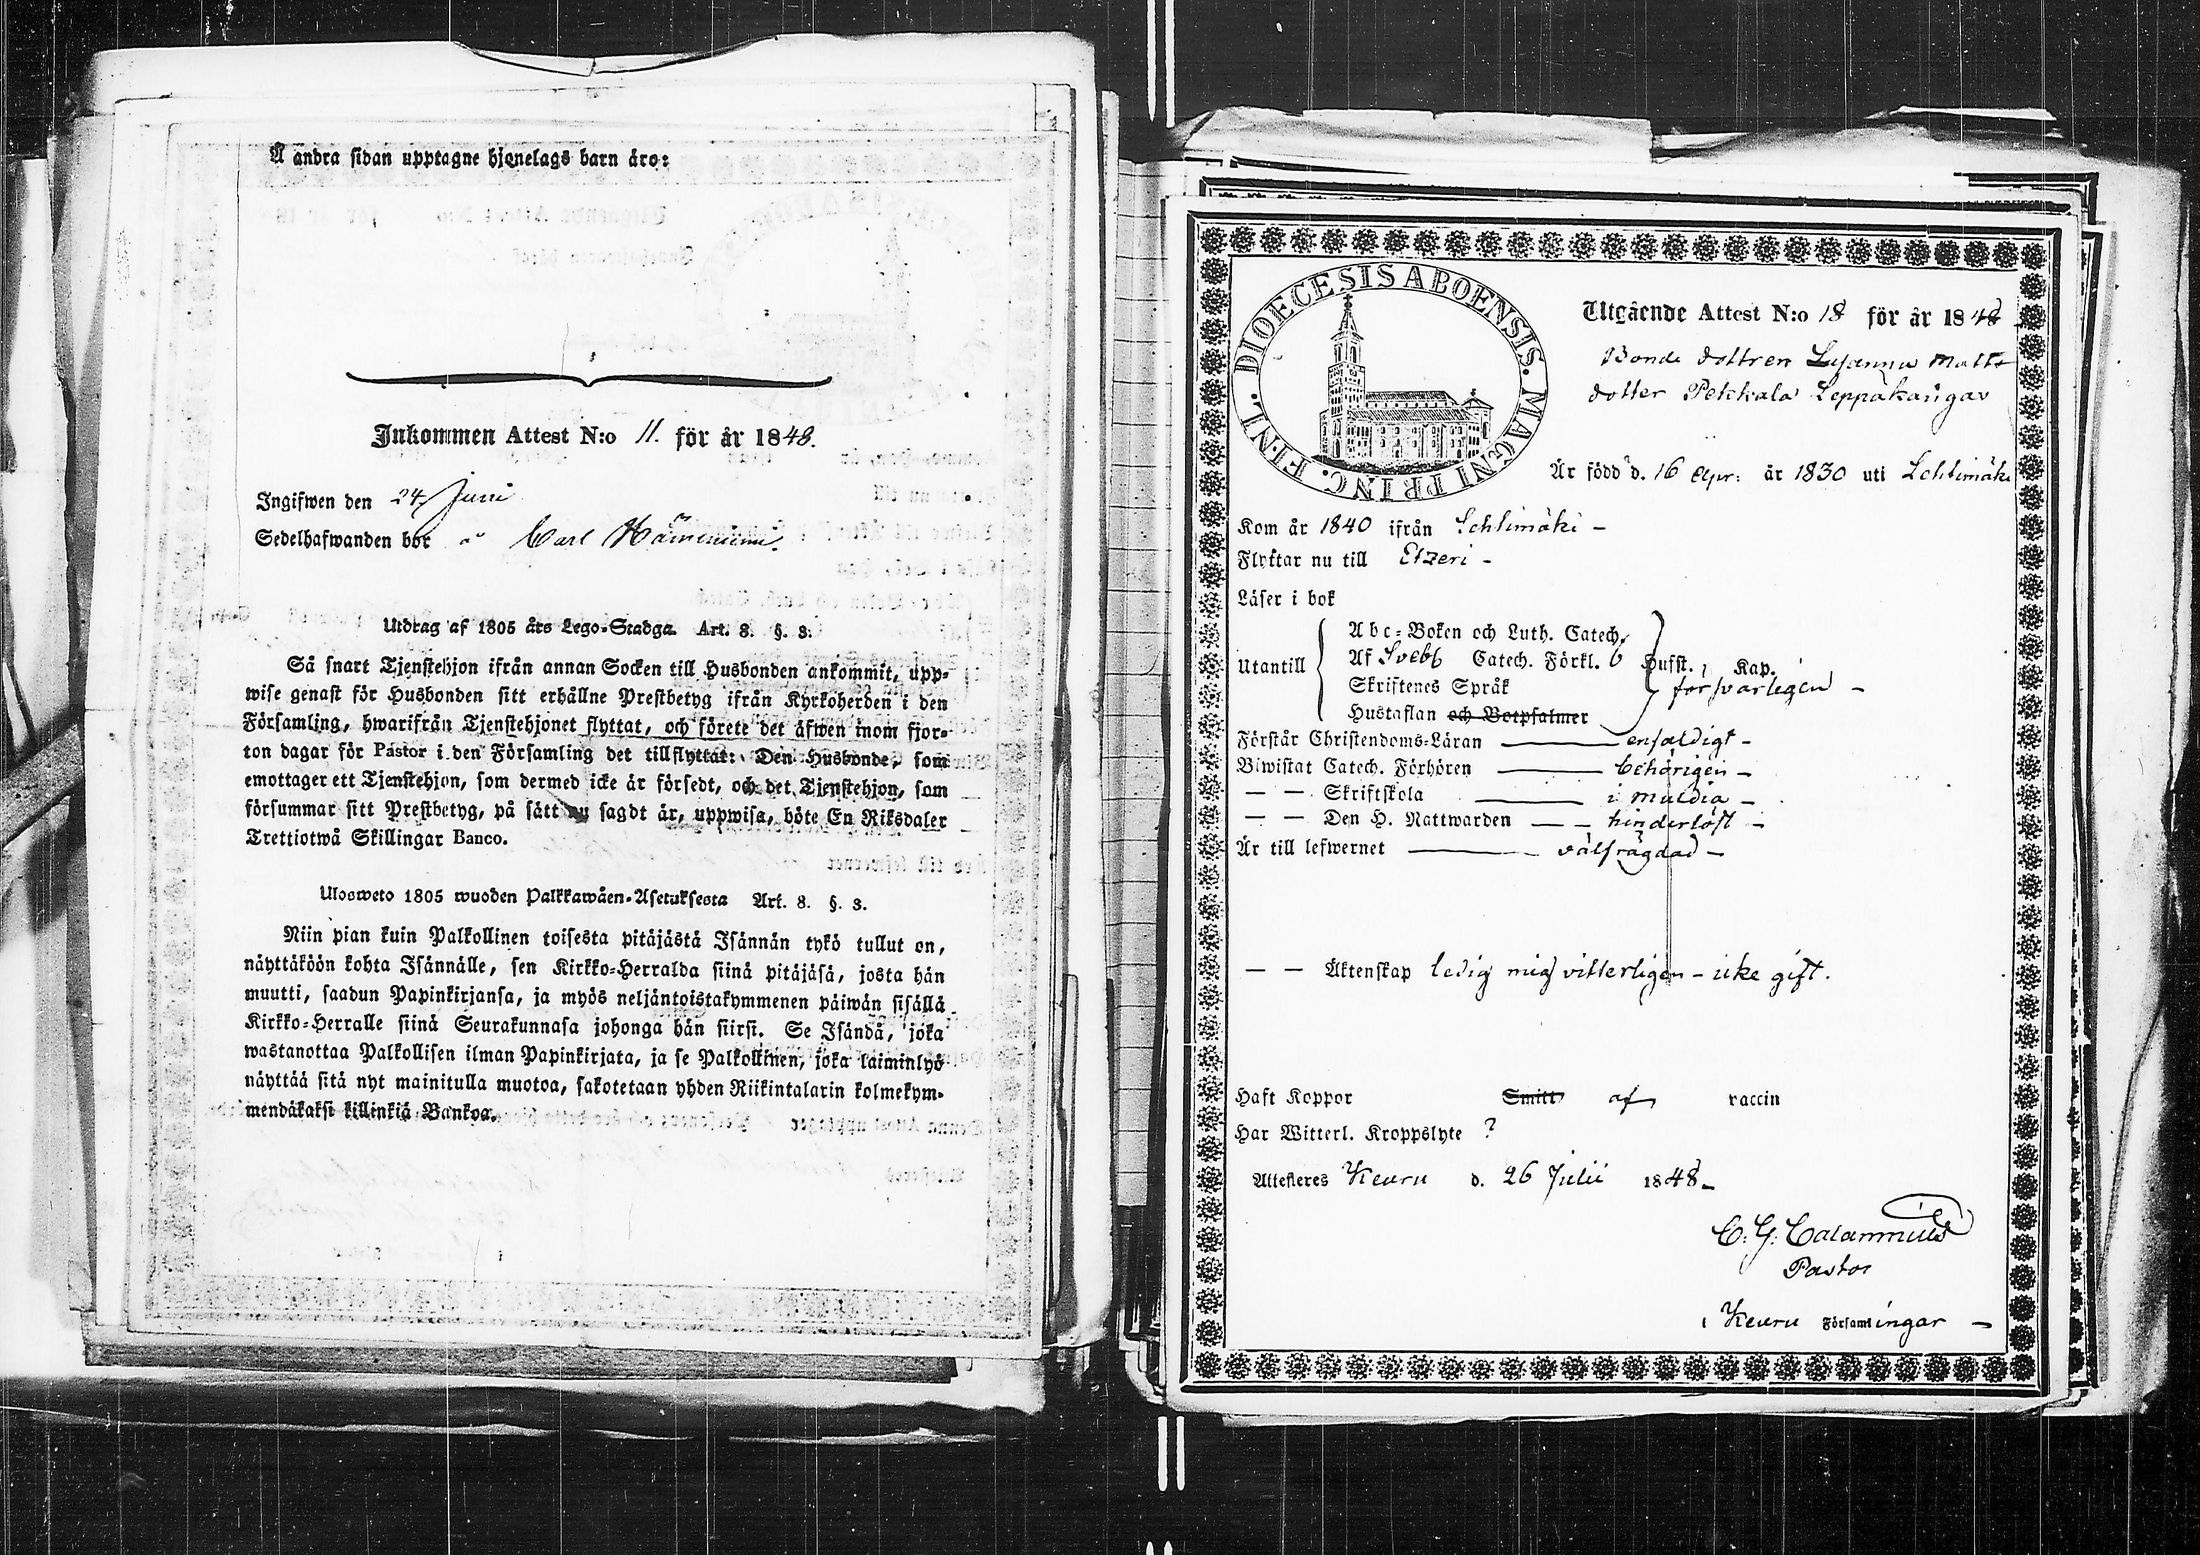 Å andra sidan upptagne hjonelags barn äro:
Inkommen Attest N:o 11. för år 1848.
Ingifwen den 24 Juni
Sedelhafwanden bor å Carl
Utdrag af 1805 års Lego-Stadga. Art. 8. §. 3.
Så snart Tjenstehjon ifrån annan Socken till Husbonden ankommit, upp-
wise genast för Husbonden sitt erhållne Prestbetyg ifrån Kyrkoherden i den
Församling, hwarifrån Tjenstehjonet flyttat, och förete det äfwen inom fjor-
ton dagar för Pastor i den Församling det tillflyttat: Den Husbonde, som
emottager ett Tjenstehjon, som dermed icke är försedt, och det Tjenstehjon, som
försummar sitt Prestbetyg, på sätt nu sagdt är, uppwisa, böte En Riksdaler
Trettiotwå Skillingar Banco.
Ulosweto 1805 wuoden Palkkawäen-Asetuksesta Art. 8. §. 3.
Niin pian kuin Palkollinen toisesta pitäjästä Isännän tykö tullut on,
näyttäköön kohta Isännälle, sen Kirkko-Herralda siinä pitäjäsä, josta hän
muutti, saadun Papinkirjansa, ja myös neljäntoistakymmenen päiwän sisällä
Kirkko-Herralle siinä Seurakunnasa johonga hän siirsi. Se Isändä, joka
wastanottaa Palkollisen ilman Papinkirjata, ja se Palkollinen, joka laiminlyö
näyttää sitä nyt mainitulla muotoa, sakotetaan yhden Riikintalarin kolmekym-
mendäkaksi killinkiä Bankoa.
DIOECESIS ABOENSIS. MAGNI PRINC. FINL.
Utgående Attest N:o 18 för år 1848
Bonde dottren Susanna Matts
dotter Pekkala Leppäkangas
Är född d. 16 Apr: år 1830 uti Lehtimäki
Kom år 1840 ifrån Lehtimäki -
Flyttar nu till Etzeri -
Läser i bok
Utantill
Abc-Boken och Luth. Catech.
Af Svebs Catech. Förkl. 6 Hufst., Kap.
Skriftenes Språk försvarligen -
Hustaflan och Botpsalmer
Förstår Christendoms-Läran enfaldigt -
Biwistat Catech. Förhören behörigen -
— — Skriftskola i Multia -
— — Den H. Nattwarden hinderlöst -
Är till lefwernet välfrägdad -
— — Äktenskap ledig mig vitterligen - icke gift.
Haft Koppor Smitt af vaccin
Har Witterl. Kroppslyte ?
Attesteres Keuru d. 26 Julii 1848 -
C. G. Calamnius
Pastor
i Keuru Församlingar -